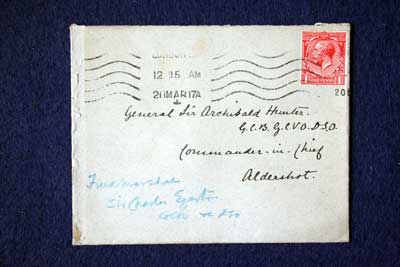 LONDON
12 15 AM
20 MAR 17 A
1 ONE PENNY 1
General Sir Archibald Hunter.
G.C.B. G.C.V.O. D.S.O.
Commander-in-Chief
Aldershot.
Field Marshal
Sir Charles Egerton
GCB
DSO